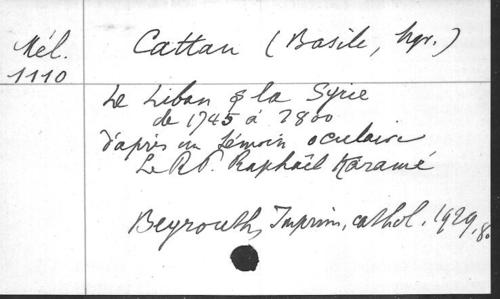 Mél.
1110
Cattan (Basile, Mgr.)
Le Liban & la Syrie
de 1745 à 2800
d'après un témoin oculaire
Le R.P. Raphaël Karamé
Beyrouth, Imprim. cathol. 1929, 8º